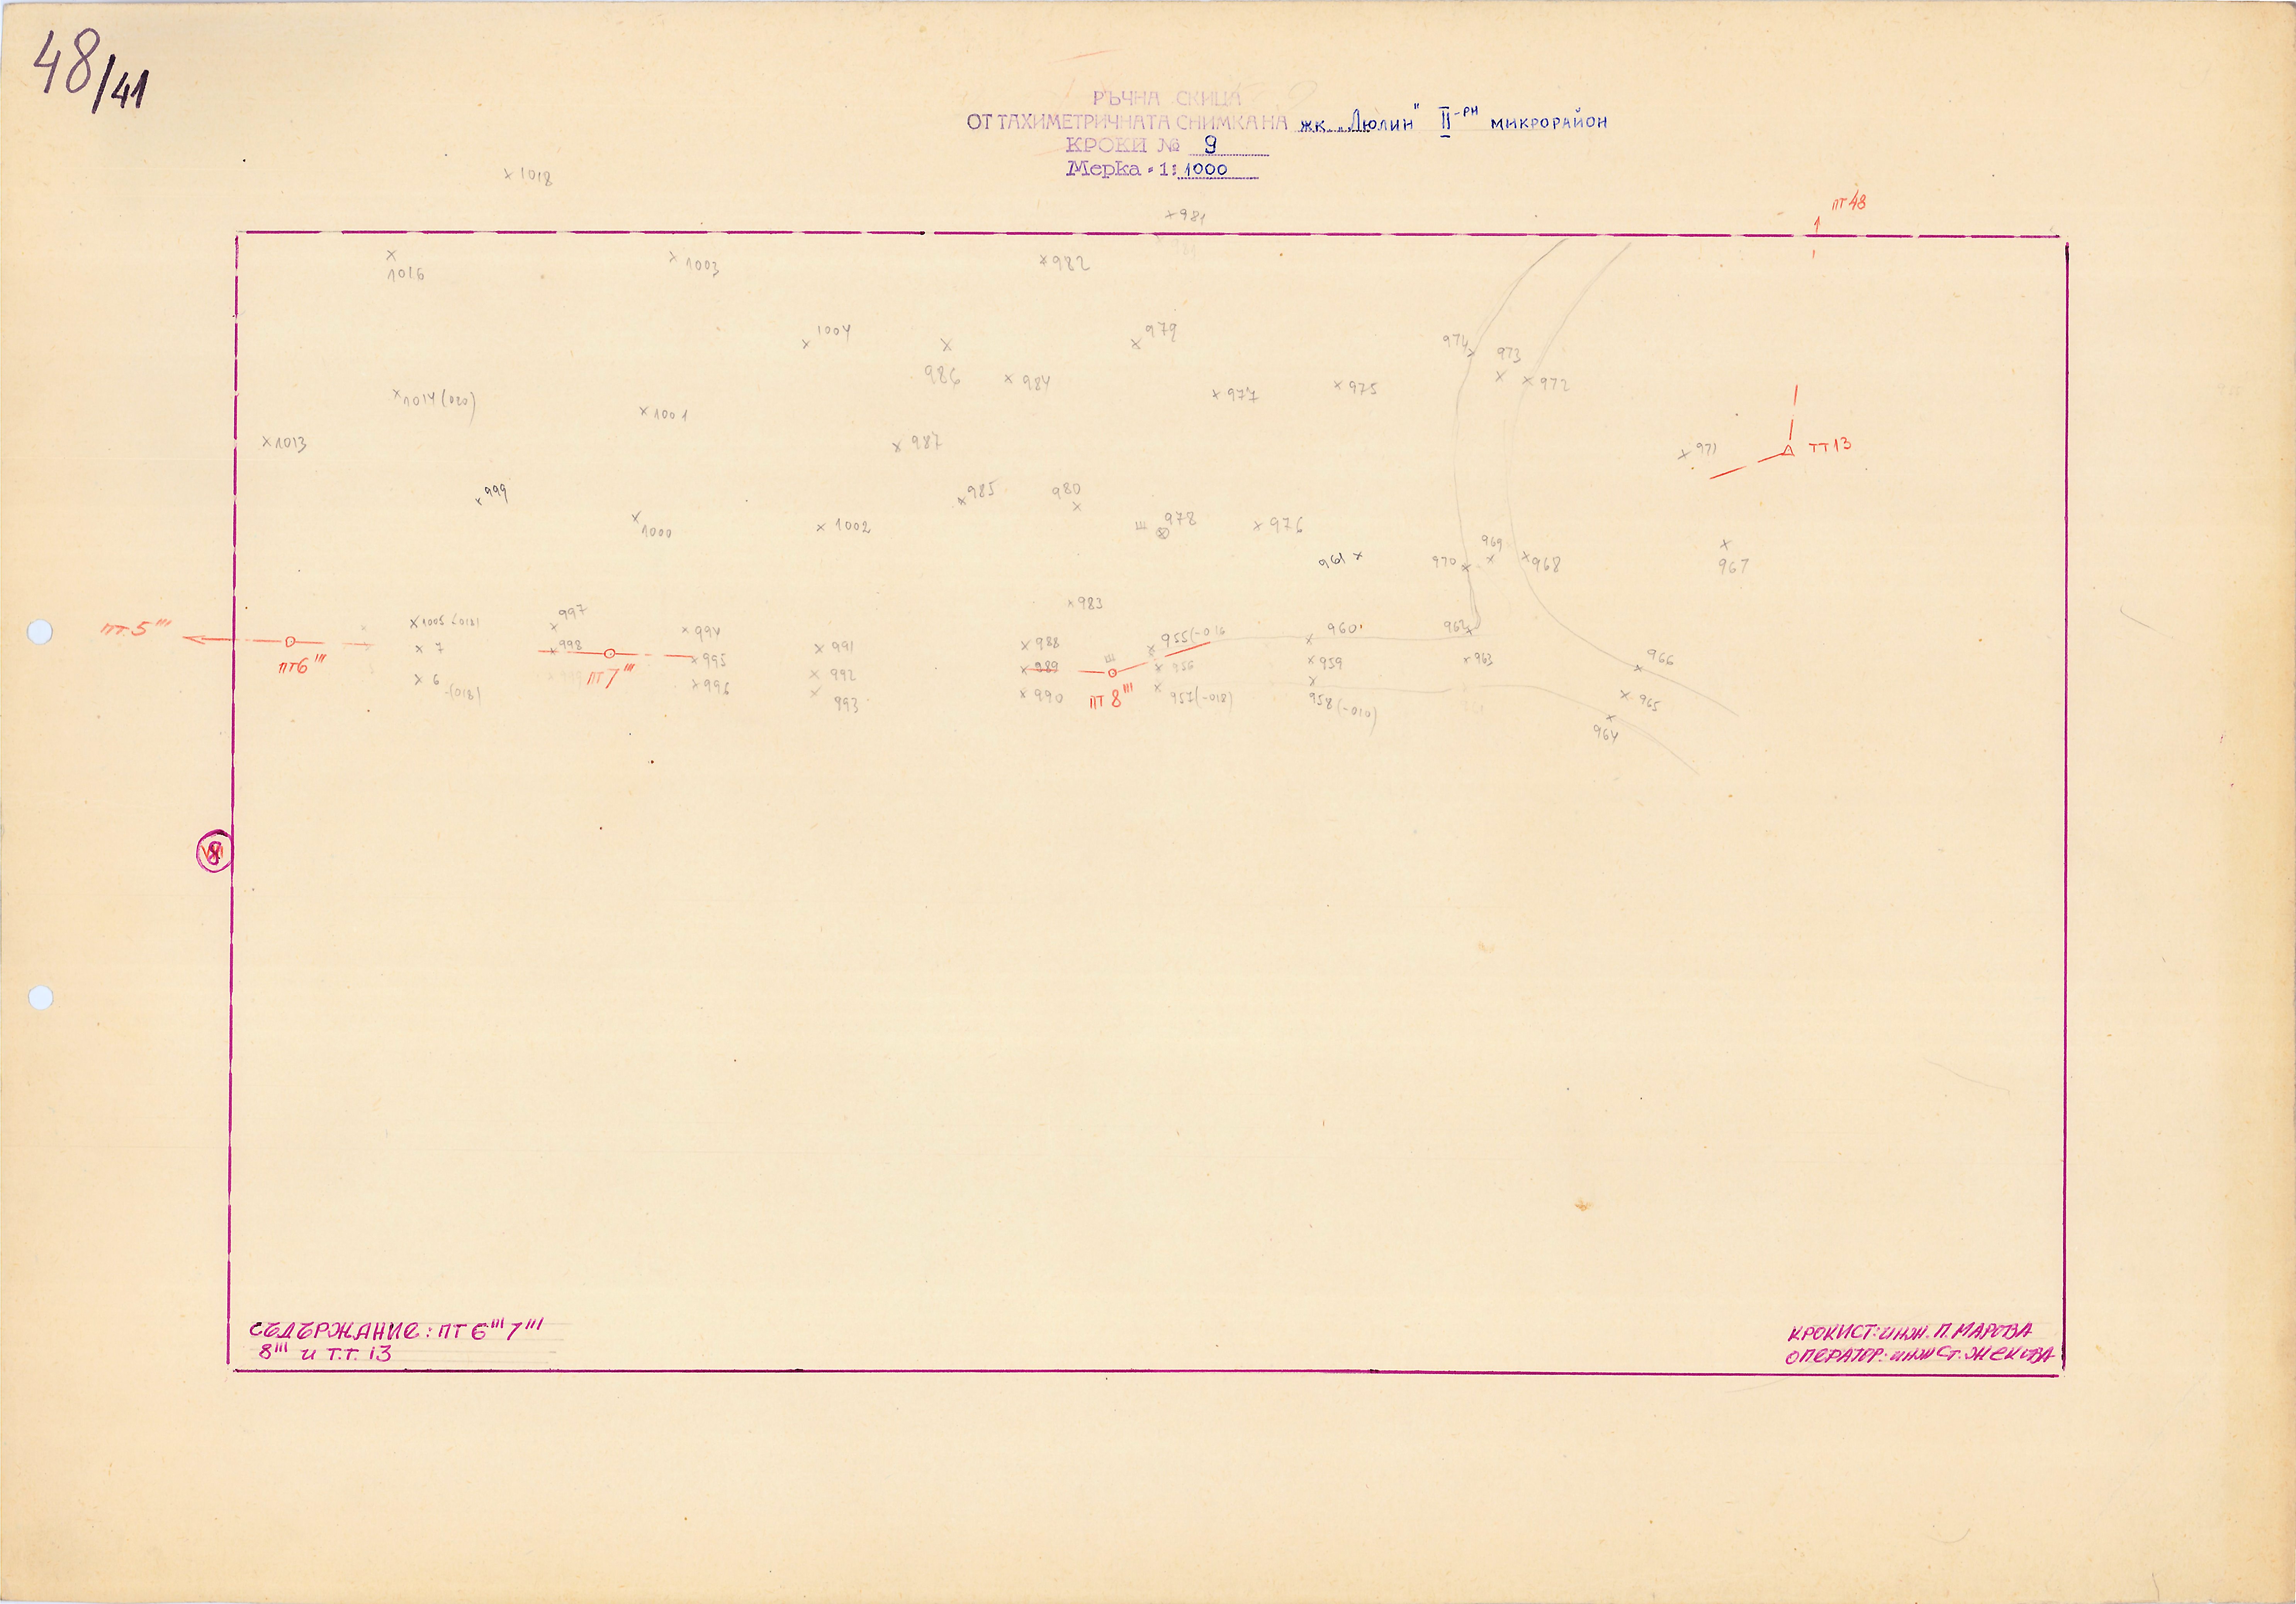 48/41
РЪЧНА СКИЦА
ОТ ТАХИМЕТРИЧНАТА СНИМКА НА жк. „Люлин" II-РИ МИКРОРАЙОН
КРОКИ № 9
Мерка - 1: 1000
1018
пт 48
981
1016
1003
982
1004
986
984
979
977
975
974
973
972
1014 (020)
1001
1013
987
971
ТТ13
999
985
980
1000
1002
978
976
961
970
969
968
967
983
пт. 5'''
1005 (018)
997
994
991
988
955(-016
960
962
7
998
995
992
989
956
959
963
966
пт6'''
пт 7'''
6 -(018)
996
993
990
пт 8'''
957(-018)
958(-010)
965
964
8
СЪДЪРЖАНИЕ: ПТ 6''' 7'''
8''' и Т.Т. 13
КРОКИСТ: инж. П. МАРОВА
ОПЕРАТОР: инж Ст. ЖЕКОВА